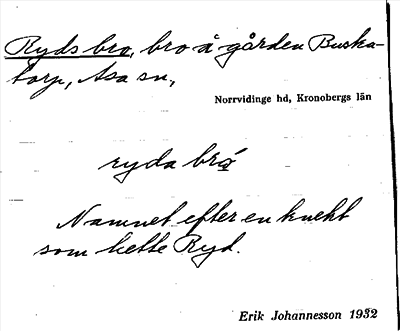 Ryds bro, bro å gården Buska-
torp, Asa sn,
Norrvidinge hd, Kronobergs län
ryda brǫ́
Namnet efter en knekt
som hette Ryd.
Erik Johannesson 1932